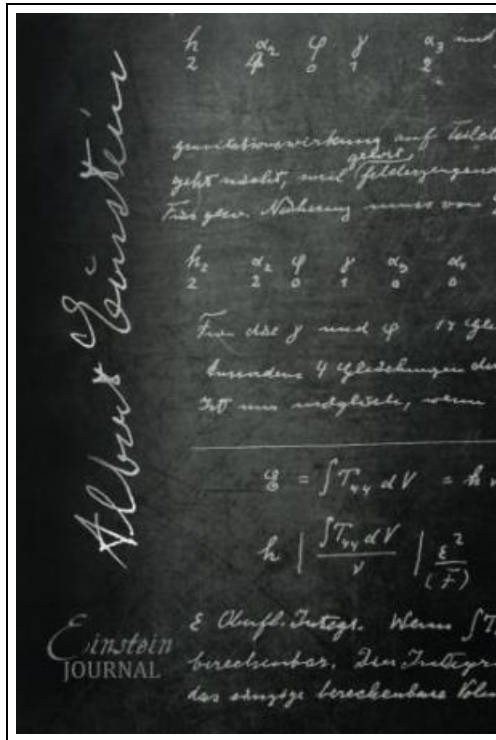 Albert Einstein
h α₂ φ γ α₃ und
2 4 0 1 2
gravitationswirkung auf Teilch
gehört
geht nicht, weil felderzeugend
Für gew. Näherung muss von
h₂ α₂ φ γ α₃ α₄
2 2 0 1 0 0
Für die γ und φ 17 Gle
Ausserdem 4 Gleichungen
Ist nur möglich, wenn
= ∫T₄₄ dV = h
h | ∫T₄₄ dV / v | ε² / (F)
ε Oberfl. Integr. Wenn ∫T
berechenbar. Dies Integr
das einzige berechenbare Volum
Einstein
JOURNAL